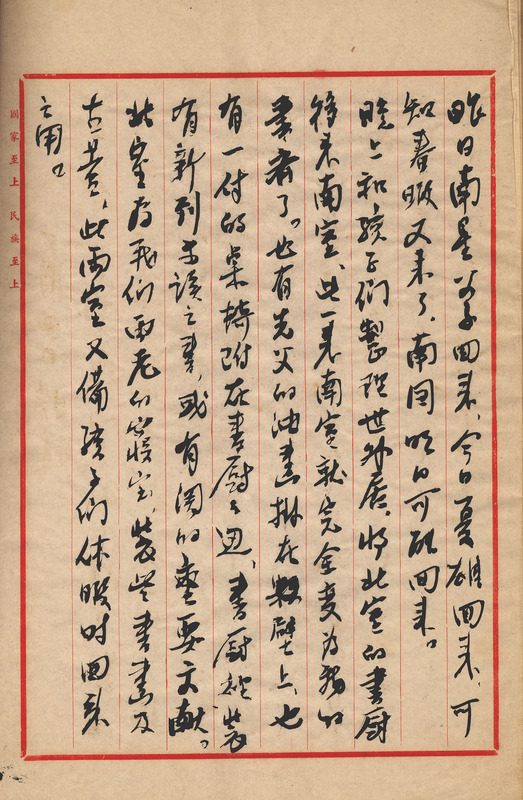 昨日南星公子回来、今日夏雄回来、可
知春暇又来了。南图明日可能回来。
晚上和孩子们整理世外居。将北室的书厨
移来南室、此一来南室就完全变为我的
书斋了。也有先父的油画掛在墙壁上、也
有一付的桌椅附在书厨之边、书厨裡装
有新刊未读之书、或有关的重要文献。
北室为我们两老的寝室、装些书画及
古董、此两室又备孩子们休暇时回来
之用。
國家至上 民族至上